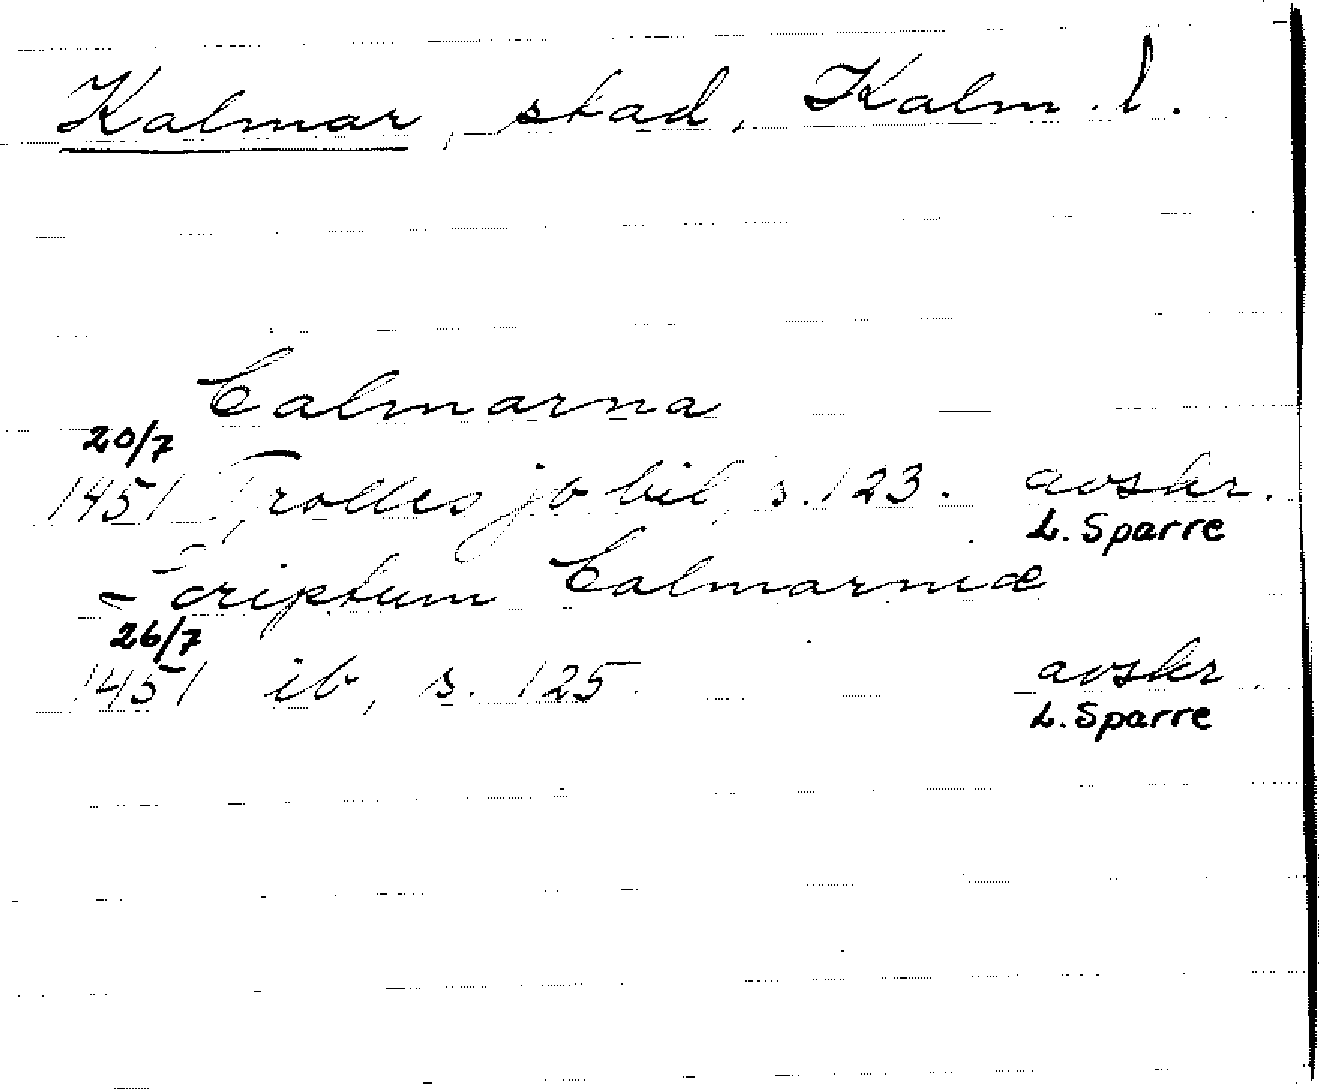 Kalmar, stad, Kalm. l.
Calmarna
20/7
1451 Trolles jb bil, s. 123. avskr.
L. Sparre
- Scriptum Calmarniæ
26/7
1451 ib, s. 125. avskr.
L. Sparre